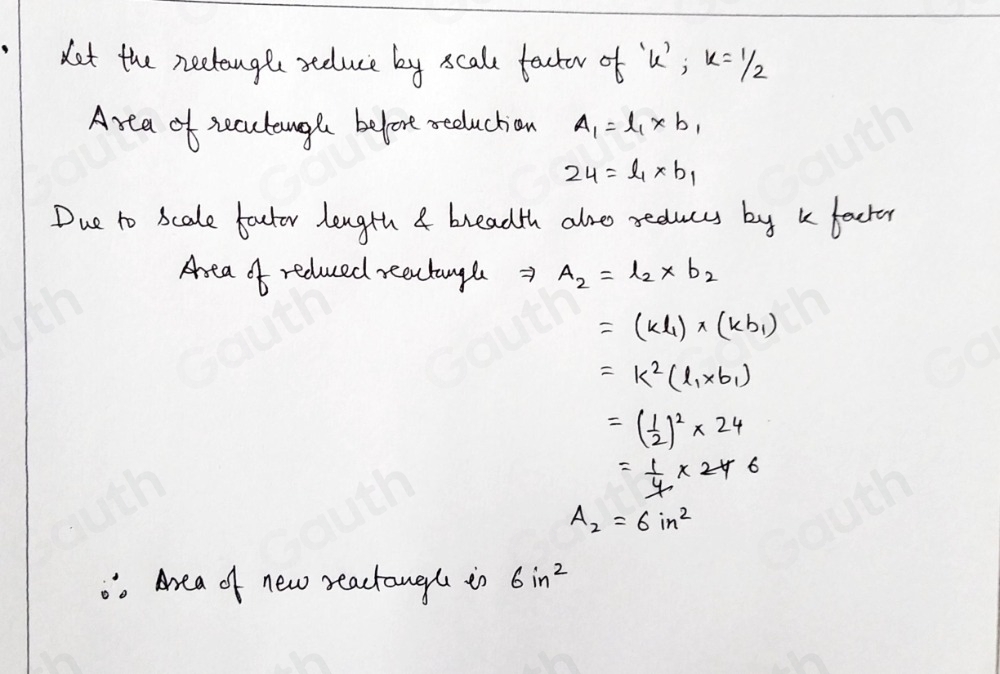 Let the rectangle reduce by scale factor of 'k'; k = 1/2
Area of reactangle before reduction A₁ = l₁ × b₁
24 = l₁ × b₁
Due to scale factor length & breadth also reduces by k factor
Area of reduced reactangle ⇒ A₂ = l₂ × b₂
= (kl₁) × (kb₁)
= k² (l₁×b₁)
= (1/2)² × 24
= 1/4 × 24 6
A₂ = 6 in²
∴ Area of new reactangle is 6 in²
Gauth